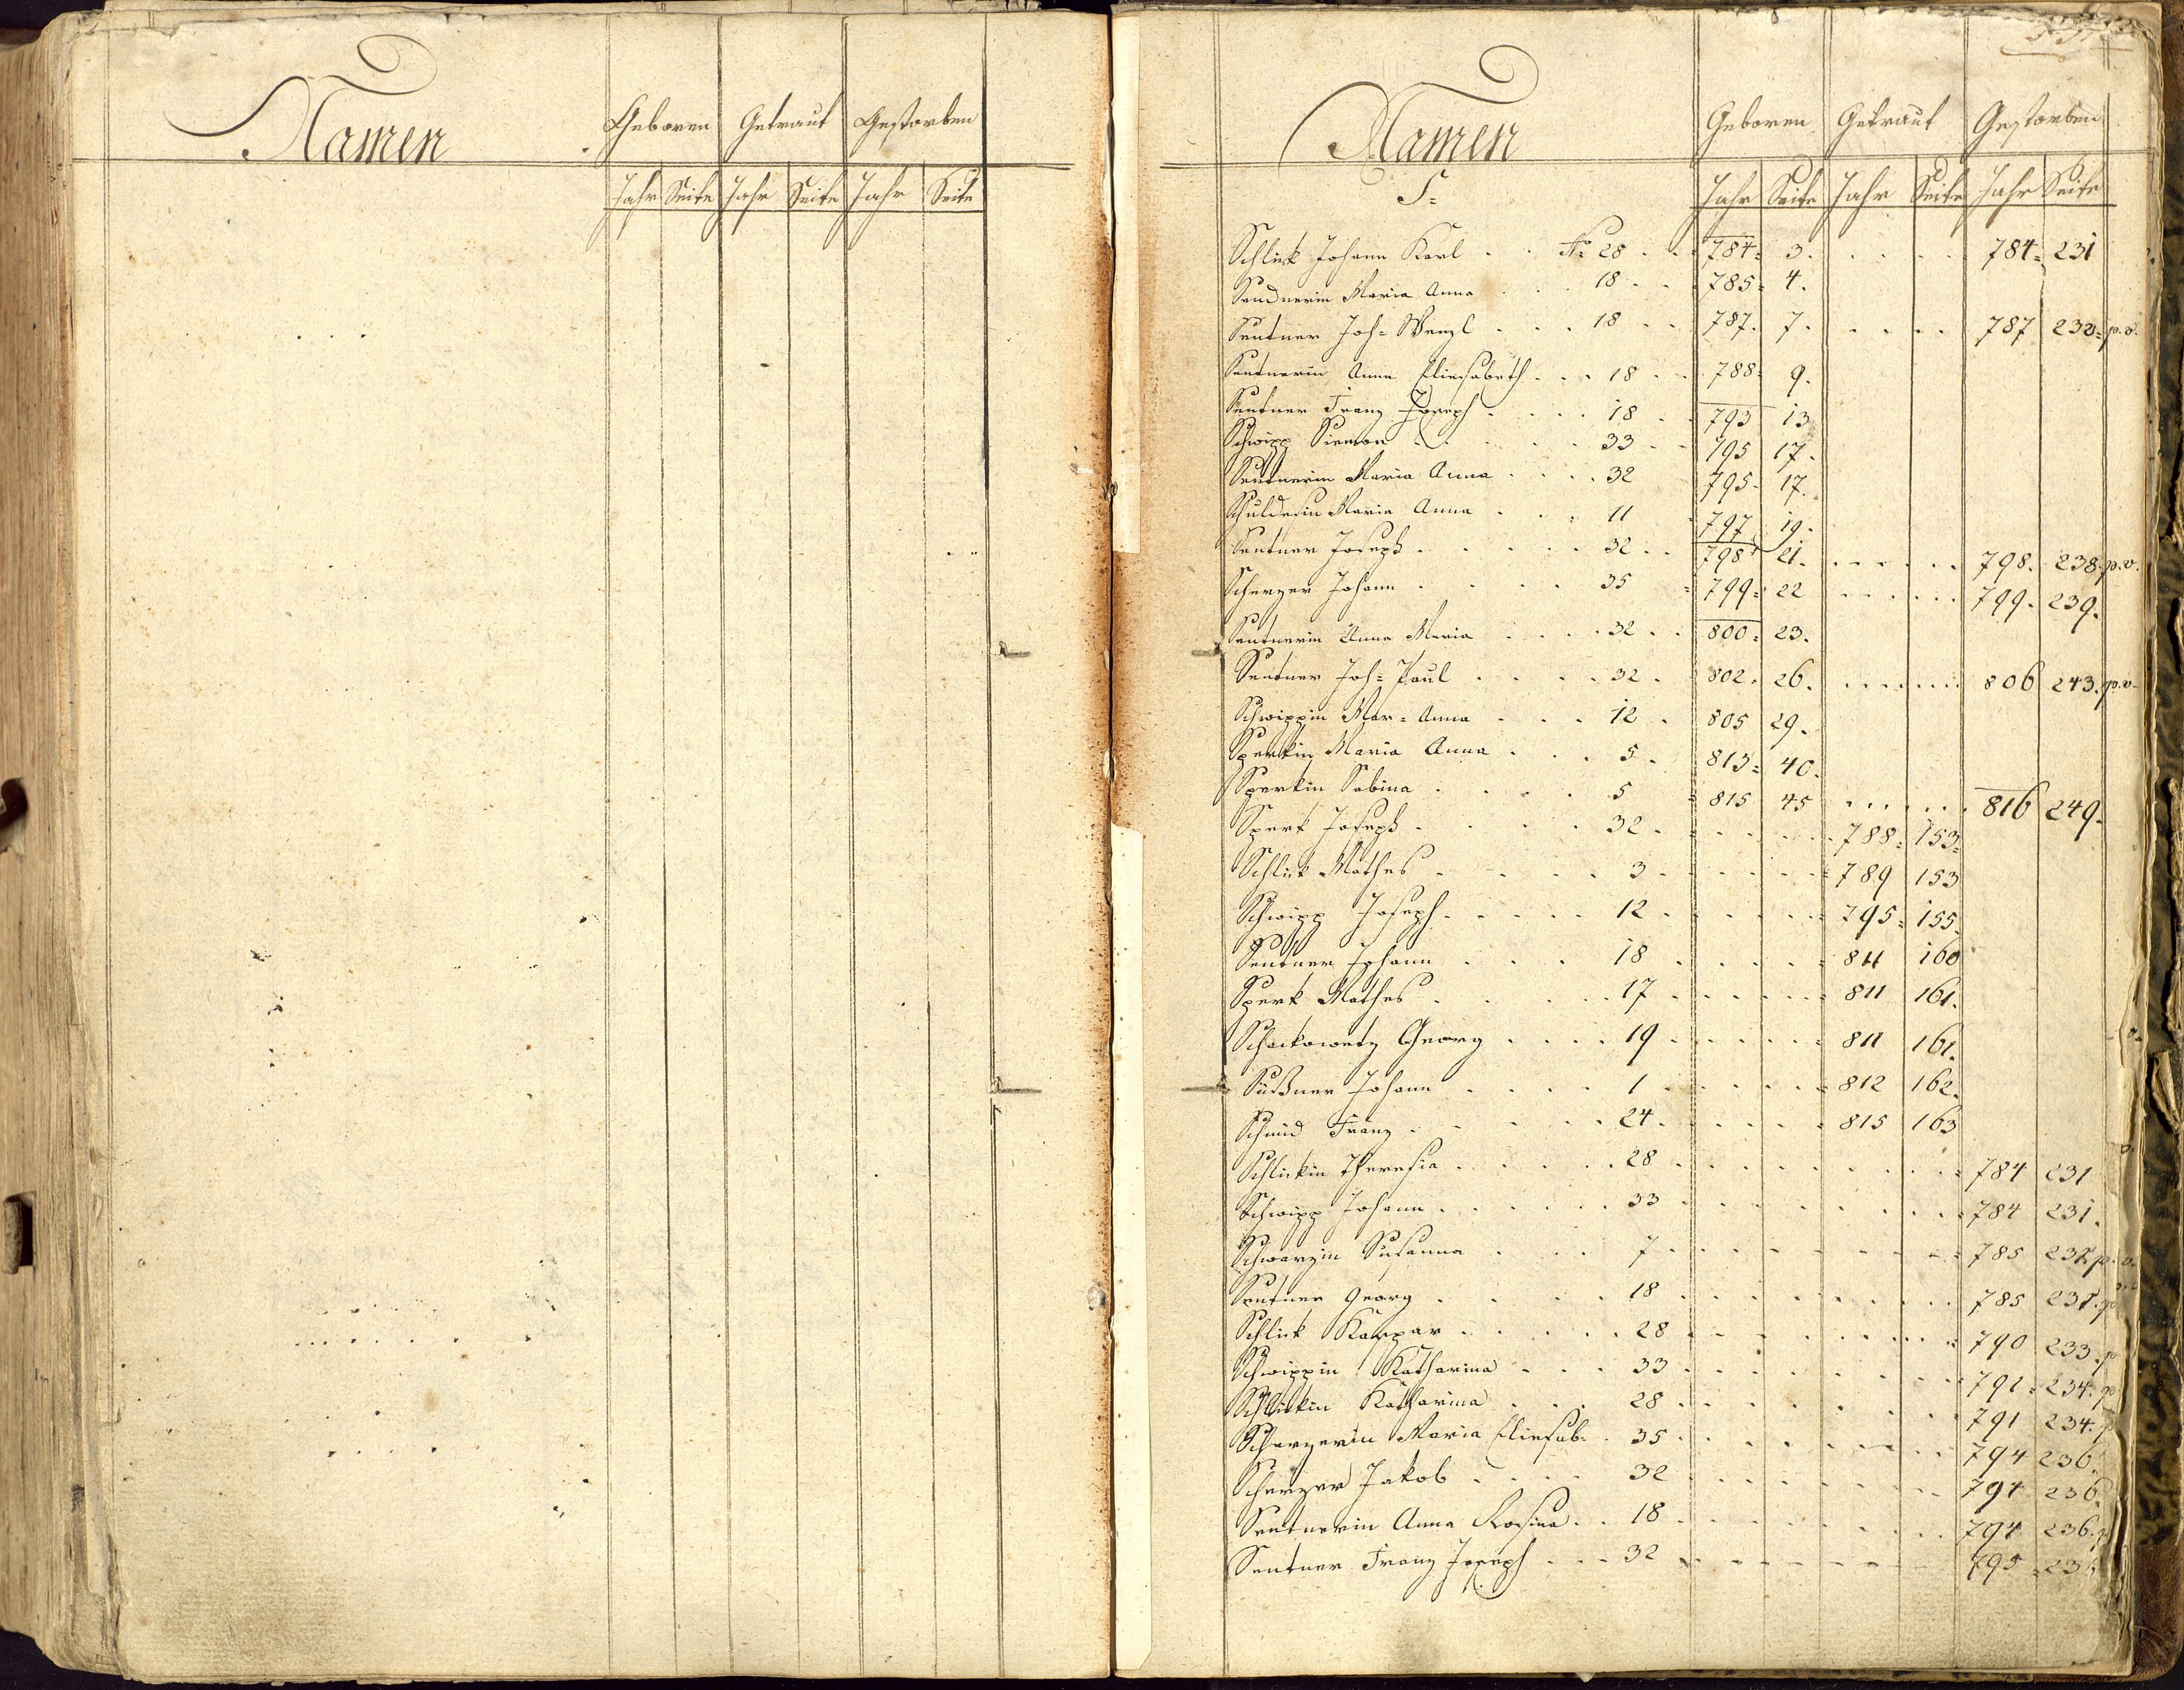 Namen Geboren Getraut Gestorben
Jahr Seite Jahr Seite Jahr Seite
Namen Geboren Getraut Gestorben
S= Jahr Seite Jahr Seite Jahr Seite
Schlick Johann Karl . . No 28 . . 784= 3. . . . . 784= 231
Sendnerin Maria Anna . . 18 . . 785= 4.
Sentner Joh= Wenzl . . . 18 . . 787. 7. . . . . 787 232= p. v.
Sentnerin Anna Eliesabeth . . . 18 . . 788= 9.
Sentner Franz Joseph . . . . 18 . . 793 13
Schwipp Siemon . . . . 33 . . 795 17.
Sentnerin Maria Anna . . . . 32 795. 17.
Maria Anna . . . 11 797 19.
Sentner Joseph . . . . . 32 . . 798 21. . . . . . 798. 238. p. v.
Scherzer Johann . . . . 35 = 799= 22 . . . . . 799. 239.
Sentnerin Anna Maria . . . . 32 . . 800= 23.
Sentner Joh= Paul . . . . 32 . 802. 26. . . . . . 806 243. p. v.
Schwippin Mar= Anna . . . 12 . 805 29.
Sperkin Maria Anna . . . 5 . 813= 40.
Sperkin Sabina . . . . 5 = 815 45 . . . . . 816 249.
Sperk Joseph . . . . 32 . . . . . 788= 153=
Schlick Mathes . . . . 3 . . . . . 789 153
Schwipp Joseph . . . . 12 . . . . . 795= 155.
Sentner Johann . . . . 18 . . . . 811 160
Sperk Mathes . . . . 17 . . . . . 811 161.
Schackowetz Georg . . . . 19 . . . . . 811 161.
Süßner Johann . . . . 1 . . . . . 812 162.
Schmid Franz . . . . . 24 . . . . . 815 163
Schlickin Theresia . . . . . 28 . . . . . 784 231
Schwipp Johann . . . . . 33 . . . . . 784 231.
Schwarzin Susanna . . . 7 . . . . . 785 231. p. v.
Sentner Georg . . . . 18 . . . . . 785 231. p
Schlick Kaspar . . . . . 28 . . . . . 790 233. p
Schwippin Katharina . . . 33 . . . . . 791= 234. p
Schlickin Katharina . . . 28 . . . . . 791 234. p
Scherzerin Maria Eliesab= . 35 . . . . . 794 236.
Scherzer Jakob . . . . 32 . . . . . 794 236.
Sentnerin Anna Rosina . . 18 . . . . . 794 236. p
Sentner Franz Joseph . . . 32 . . . . . 795